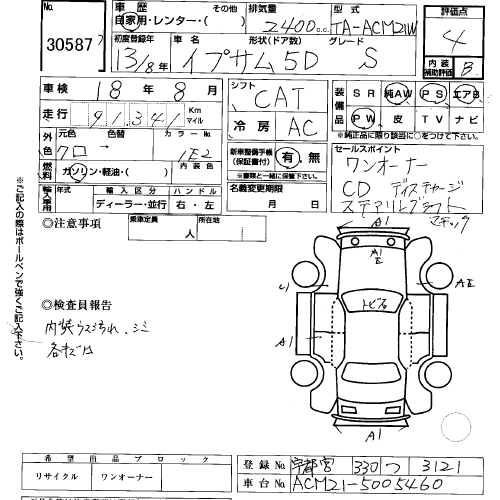 No. 30587
車歴 自家用・レンター・( ) その他
排気量 2400cc
型式 TA-ACM21W
評価点 4
内装補助評価 B
初度登録年 13/8年
車名 イプサム
形状(ドア数) 5D
グレード S
車検 18年8月
走行 91,341 Km マイル
シフト CAT
冷房 AC
装備品 SR 純AW PS エアB
PW 皮 TV ナビ
※純正品に限り該当に○をつけて下さい。
外色 元色 クロ 色替 カラーNo. 1E2
燃料 ガソリン・軽油・( ) 内装色
新車整備手帳(保証書付) 有・無
※書類と一緒に保管して下さい。
セールスポイント
ワンオーナー
CD ディスチャージ
輸入車用 年式 輸入区分 ディーラー・並行 ハンドル 右・左
名義変更期限 月 日
◎注意事項
乗車定員 人
所在地
◎検査員報告
各キズ有
※ご記入の際はボールペンで強くご記入下さい。
A1
A1
E
トビ石
AE
A1
A1
希望出品ブロック
リサイクル ワンオーナー
登録No. 宇都宮 330 つ 3121
車台No. ACM21-5005460